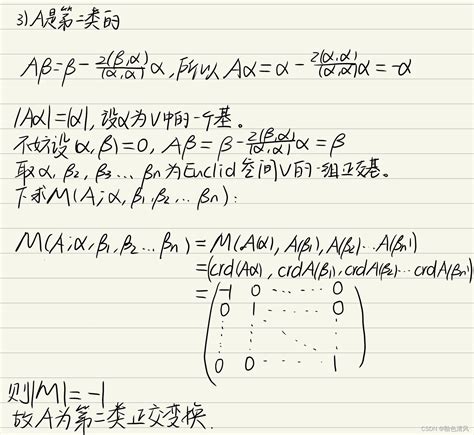 3)A是第二类的
Aβ=β-\frac{2(β,α)}{(α,α)}α,所以Aα=α-\frac{2(α,α)}{(α,α)}α=-α
|Aα|=|α|,设α为V中的一个基。
不妨设(α,β)=0, Aβ=β-\frac{2(β,α)}{(α,α)}α=β
取α,β₂,β₃…βn为Euclid空间V的一组正交基。
下求M(A;α,β₁,β₂…βn):
M(A;α,β₁,β₂…βn)=M(A(α),A(β₁),A(β₂)…A(βn))
=(crd(Aα),crdA(β₁),crdA(β₂)…crdA(βn))
=
-1 0 ⋯ 0
0 1 ⋯ 0
⋮ ⋱ ⋮
0 0 ⋯ 1
则|M|=-1
故A为第二类正交变换.
CSDN @脸色清风